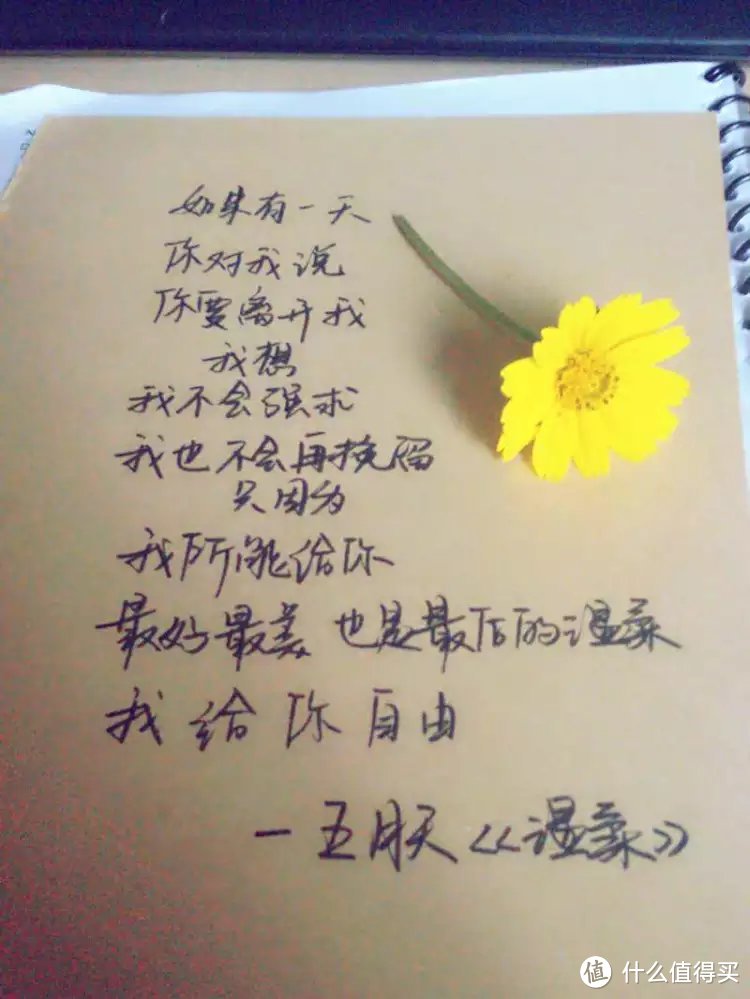 如果有一天
你对我说
你要离开我
我想
我不会强求
我也不会再挽留
只因为
我所能给你
最好最美 也是最后的温柔
我给你自由
一五月天《温柔》
值 什么值得买